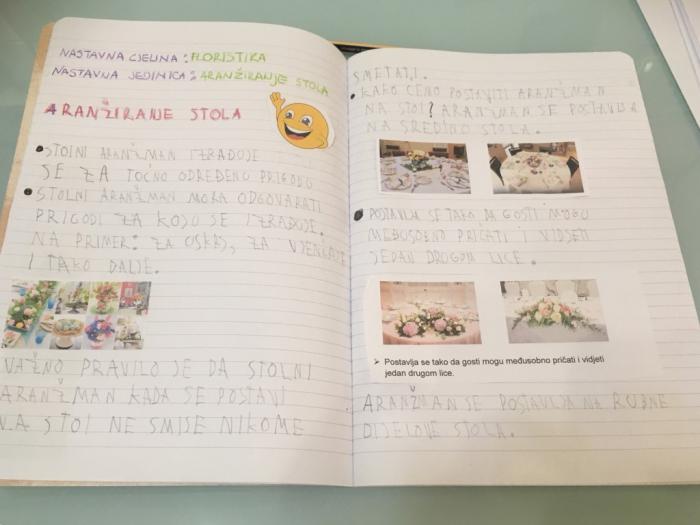 NASTAVNA CJELINA: FLORISTIKA
NASTAVNA JEDINICA: ARANŽIRANJE STOLA
ARANŽIRANJE STOLA
• STOLNI ARANŽMAN IZRAĐUJE
SE ZA TOČNO ODREĐENU PRIGODU
• STOLNI ARANŽMAN MORA ODGOVARATI
PRIGODI ZA KOJU SE IZRAĐUJE.
NA PRIMER: ZA USKRS, ZA VJENČANJE
I TAKO DALJE.
VAŽNO PRAVILO JE DA STOLNI
ARANŽMAN KADA SE POSTAVI
NA STOL NE SMIJE NIKOME
SMETATI.
• KAKO ĆEMO POSTAVITI ARANŽMAN
NA STOL? ARANŽMAN SE POSTAVLJA
NA SREDINU STOLA.
• POSTAVLJA SE TAKO DA GOSTI MOGU
MEĐUSOBNO PRIČATI I VIDJETI
JEDAN DRUGOM LICE.
➢ Postavlja se tako da gosti mogu međusobno pričati i vidjeti
jedan drugom lice.
ARANŽMAN SE POSTAVLJA NA RUBNE
DIJELOVE STOLA.